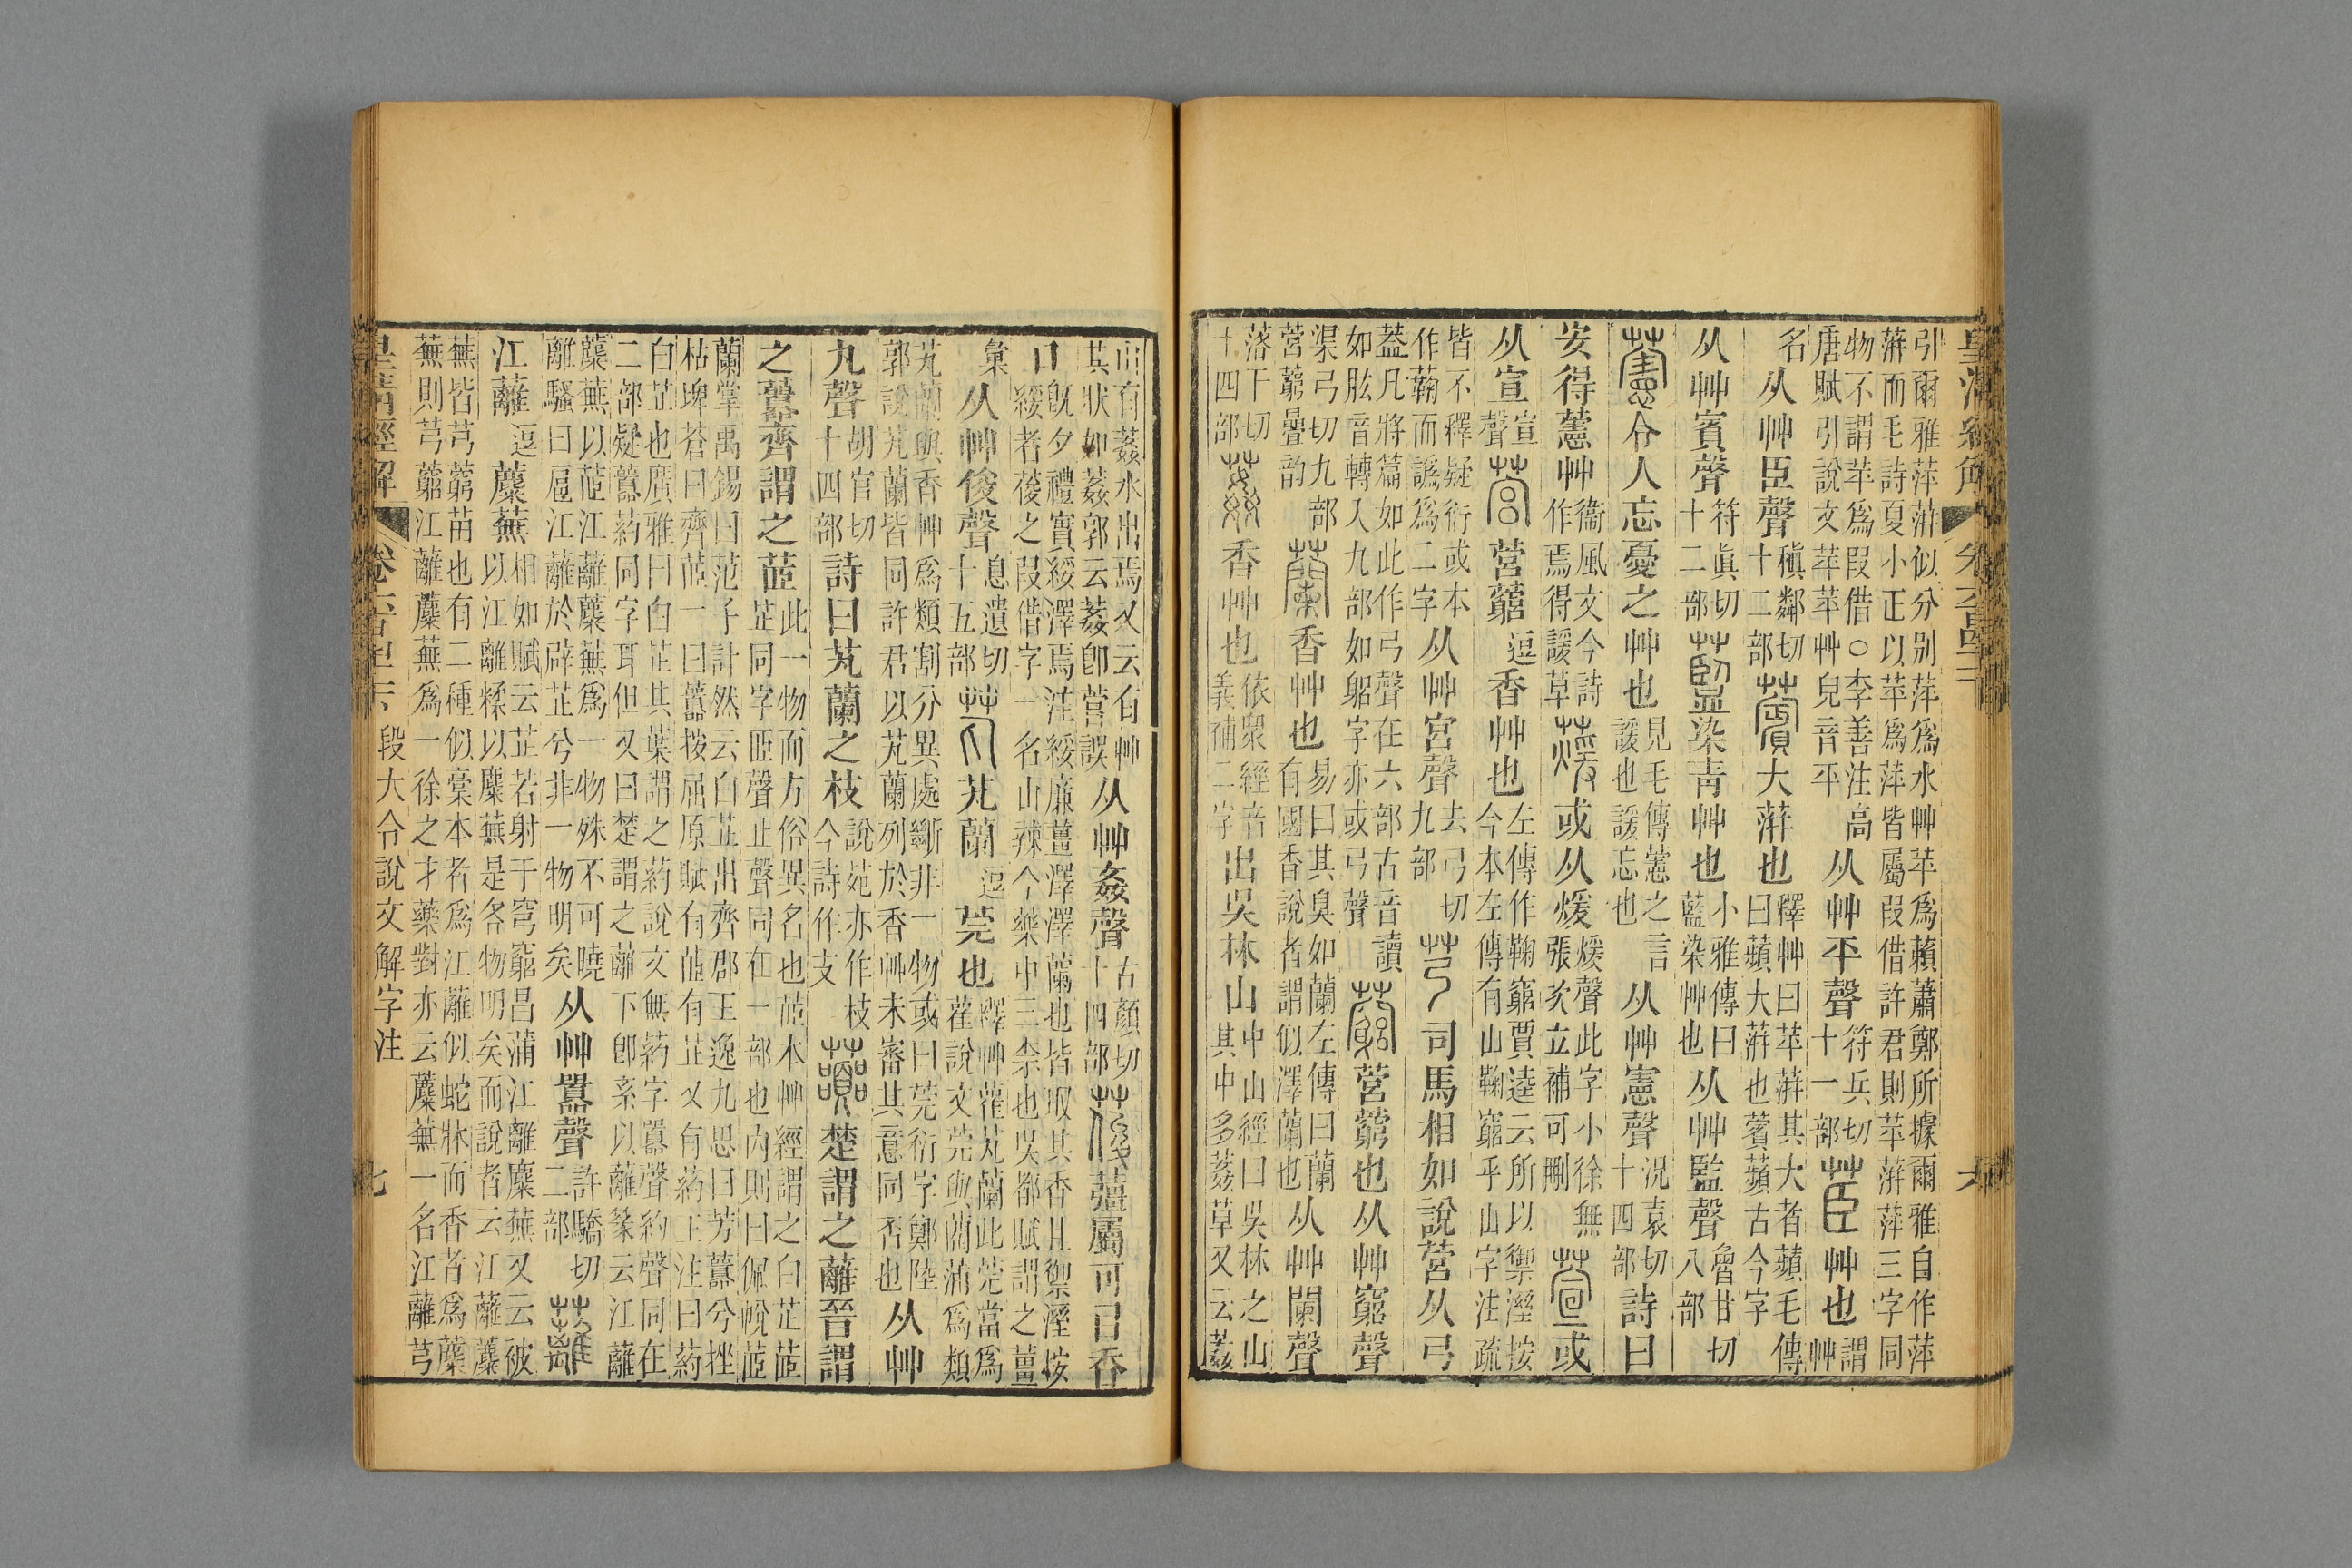 引爾雅萍蓱似分別萍爲水艸苹爲藾蕭鄭所據爾雅自作萍
蓱而毛詩夏小正以苹爲萍皆屬叚借許君則苹蓱萍三字同
物不謂苹爲叚借○李善注高
唐賦引說文苹苹艸皃音平
从艸平聲
符兵切
十一部
茞艸也
謂
艸
名
从艸臣聲
稹鄰切
十二部
薲大蓱也
釋艸曰苹蓱其大者蘋毛傳
曰蘋大蓱也薲蘋古今字
从艸賓聲
符眞切
十二部
藍染靑艸也
小雅傳曰
藍染艸也
从艸監聲
魯甘切
八部
藼令人忘憂之艸也
見毛傳藼之言
諼也諼忘也
从艸憲聲
況袁切
十四部
詩曰
安得藼艸
衞風文今詩
作焉得諼草
蕿或从煖
煖聲此字小徐無
張次立補可刪
萱或
从宣
宣
聲
营营藭
逗
香艸也
左傳作鞠竆賈逵云所以禦溼按
今本左傳有山鞠竆乎山字注疏
皆不釋疑衍或本
作蘜而譌爲二字
从艸宮聲
去弓切
九部
芎司馬相如說营从弓
蓋凡將篇如此作弓聲在六部古音讀
如肱音轉入九部如躳字亦或弓聲
藭营藭也从艸竆聲
渠弓切九部
营藭曡韵
蘭香艸也
易曰其臭如蘭左傳曰蘭
有國香說者謂似澤蘭也
从艸闌聲
落干切
十四部
葌香艸也
依眾經音
義補二字
出吳林山
中山經曰吳林之山
其中多葌草又云葌
山有葌水出焉又云有艸
其狀如葌郭云葌卽菅誤
从艸姦聲
古顏切
十四部
葰薑屬可㠯香
口
旣夕禮實綏澤焉注綏廉薑澤澤蘭也皆取其香且禦溼按
綏者葰之叚借字一名山辣今藥中三柰也吳都賦謂之薑
彙
从艸俊聲
息遺切
十五部
芄芄蘭
逗
莞也
釋艸雚芄蘭此莞當爲
雚說文莞與藺蒲爲類
芄蘭與香艸爲類割分異處斷非一物或曰莞衍字鄭陸
郭說芄蘭皆同許君以芄蘭列於香艸未審其意同否也
从艸
丸聲
胡官切
十四部
詩曰芄蘭之枝
說苑亦作枝
今詩作支
䖀楚謂之蘺晉謂
之䖀齊謂之茝
此一物而方俗異名也茝本艸經謂之白芷茝
芷同字臣聲止聲同在一部也內則曰佩帨茝
蘭掌禹錫曰范子計然云白芷出齊郡王逸九思曰芳䖀兮挫
枯埤蒼曰齊茝一曰䖀按屈原賦有茝有芷又有葯王注曰葯
白芷也廣雅曰白芷其葉謂之葯說文無葯字䖀聲約聲同在
二部疑䖀葯同字耳但又曰楚謂之蘺下卽系以蘺篆云江蘺
蘪蕪以茝江蘺蘪蕪爲一物殊不可曉
離騷曰扈江蘺於辟芷兮非一物明矣
从艸囂聲
許驕切
二部
蘺
江蘺
逗
蘪蕪
相如賦云芷若射干穹竆昌蒲江蘺蘪蕪又云被
以江離糅以蘪蕪是各物明矣而說者云江蘺蘪
蕪皆芎藭苗也有二種似藁本者爲江蘺似蛇牀而香者爲蘪
蕪則芎藭江蘺蘪蕪爲一徐之才藥對亦云蘪蕪一名江蘺芎
皇淸經解
段大令說文解字注
七